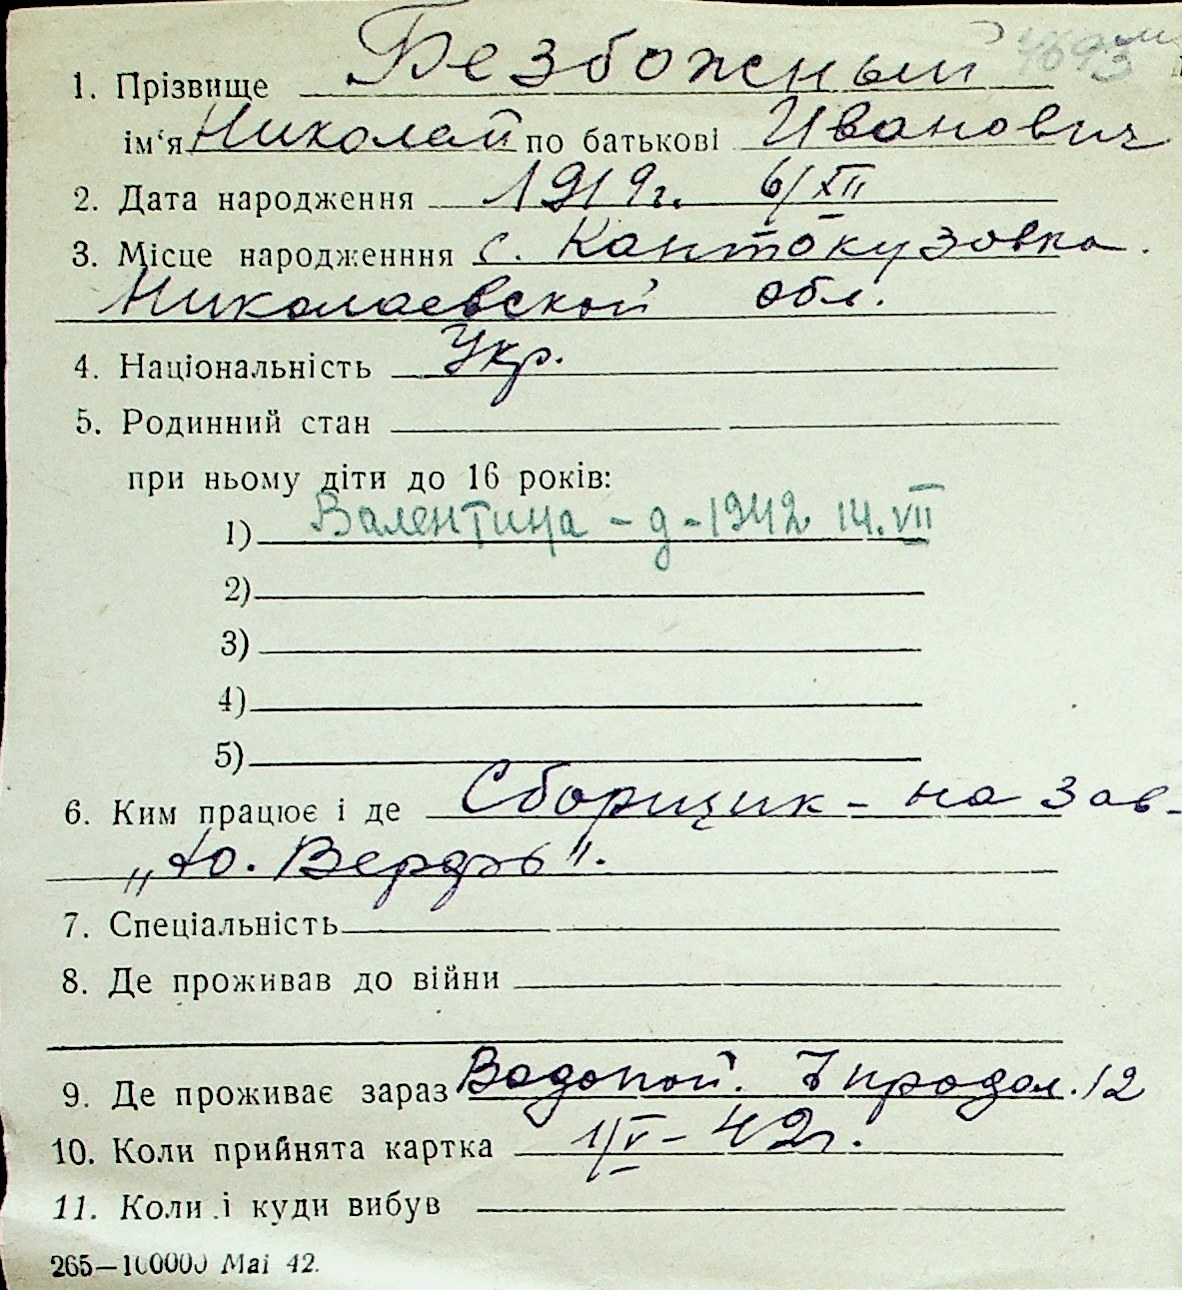 1. Прізвище Безбожный
ім'я Николай по батькові Иванович
2. Дата народження 1919г. 6/XII
3. Місце народженння с. Кантокузовка.
Николаевской обл.
4. Національність Укр.
5. Родинний стан
при ньому діти до 16 років:
1) Валентина - д - 1942 14.VII
2)
3)
4)
5)
6. Ким працює і де Сборщик - на зав-
„Ю. Верфь".
7. Спеціальність
8. Де проживав до війни
9. Де проживає зараз Водопой. 7 продол. 12
10. Коли прийнята картка 1/V - 42г.
11. Коли і куди вибув
265—100000 Mai 42.